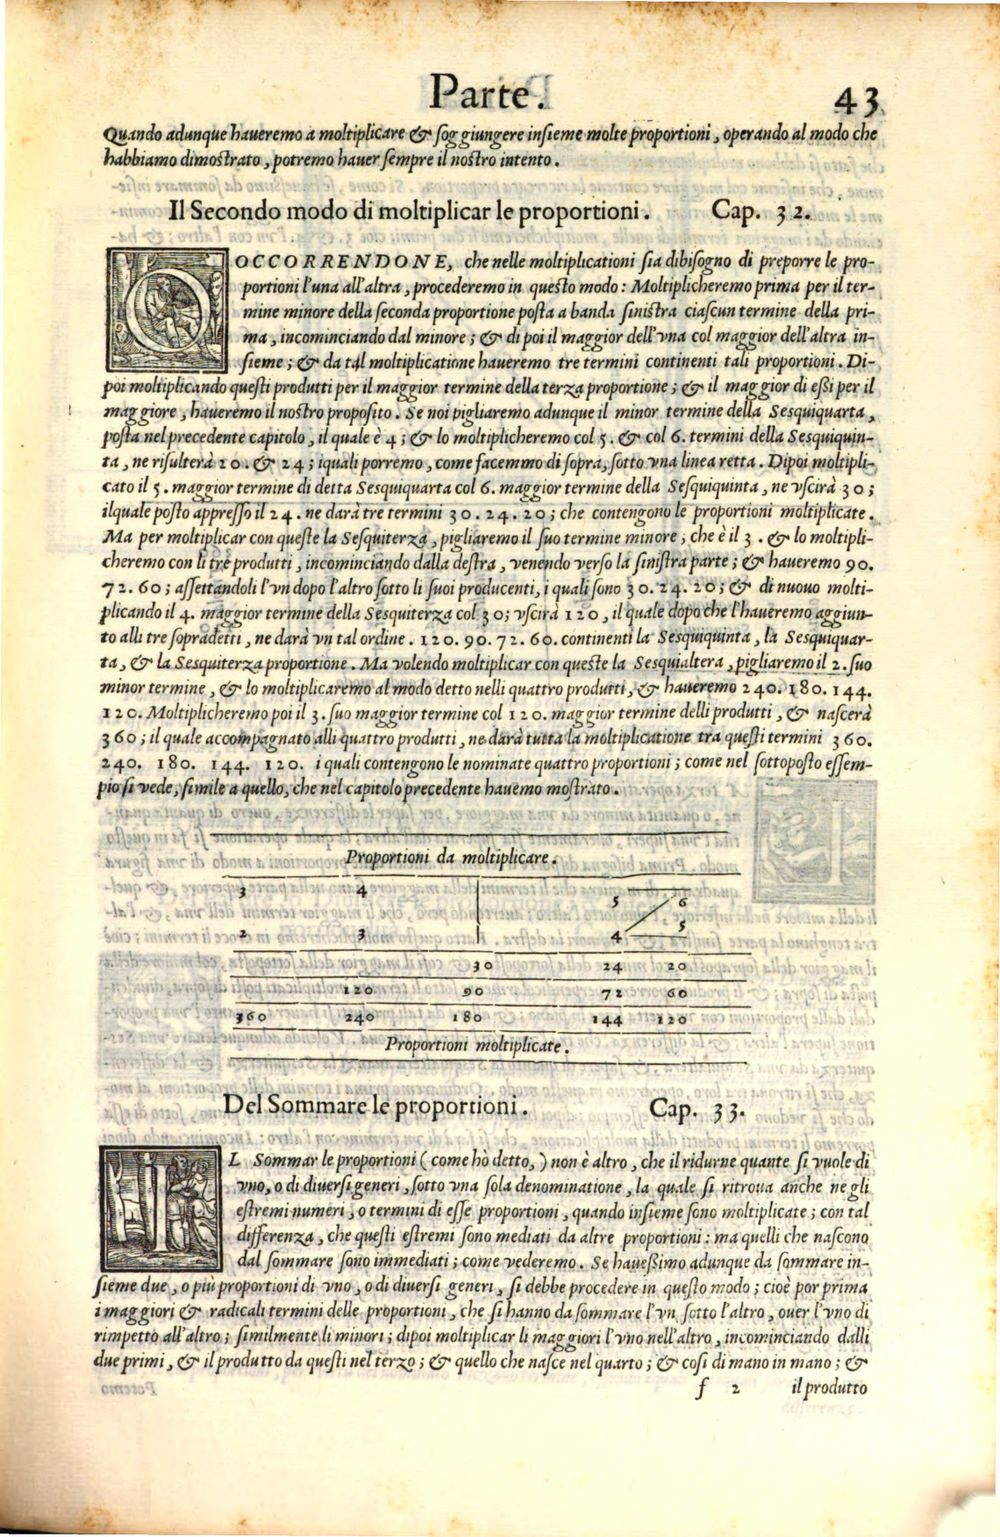 Parte. 43
Quando adunque haueremo a moltiplicare & ſoggiungere inſieme molte proportioni, operando al modo che
habbiamo dimoſtrato, potremo hauer ſempre il noſtro intento.
Il Secondo modo di moltiplicar le proportioni. Cap. 32.
OCCORRENDONE, che nelle moltiplicationi ſia dibiſogno di preporre le pro-
portioni l'una all'altra, procederemo in queſto modo: Moltiplicheremo prima per il ter-
mine minore della ſeconda proportione poſta a banda ſiniſtra ciaſcun termine della pri-
ma, incominciando dal minore; & di poi il maggior dell'vna col maggior dell'altra in-
ſieme; & da tal moltiplicatione haueremo tre termini continenti tali proportioni. Di-
poi moltiplicando queſti produtti per il maggior termine della terza proportione; & il maggior di eßi per il
maggiore, haueremo il noſtro propoſito. Se noi pigliaremo adunque il minor termine della Sesquiquarta,
poſta nel precedente capitolo, il quale è 4; & lo moltiplicheremo col 5. & col 6. termini della Sesquiquin-
ta, ne riſulterà 20. & 24; iquali porremo, come facemmo di ſopra, ſotto vna linea retta. Dipoi moltipli-
cato il 5. maggior termine di detta Sesquiquarta col 6. maggior termine della Seſquiquinta, ne vſcirà 30;
ilquale poſto appreſſo il 24. ne darà tre termini 30. 24. 20; che contengono le proportioni moltiplicate.
Ma per moltiplicar con queſte la Seſquiterza, pigliaremo il ſuo termine minore; che è il 3. & lo moltipli-
cheremo con li trè produtti, incominciando dalla deſtra, venendo verſo la ſiniſtra parte; & haueremo 90.
72. 60; aſſettandoli l'vn dopo l'altro ſotto li ſuoi producenti, i quali ſono 30. 24. 20; & di nuouo molti-
plicando il 4. maggior termine della Sesquiterza col 30; vſcirà 120, il quale dopo che l'haueremo aggiun-
to alli tre ſopradetti, ne darà vn tal ordine. 120. 90. 72. 60. continenti la Sesquiquinta, la Sesquiquar-
ta, & la Sesquiterza proportione. Ma volendo moltiplicar con queſte la Sesquialtera, pigliaremo il 2. ſuo
minor termine, & lo moltiplicaremo al modo detto nelli quattro produtti, & haueremo 240. 180. 144.
120. Moltiplicheremo poi il 3. ſuo maggior termine col 120. maggior termine delli produtti, & naſcerà
360; il quale accompagnato alli quattro produtti, ne darà tutta la moltiplicatione tra queſti termini 360.
240. 180. 144. 120. i quali contengono le nominate quattro proportioni; come nel ſottopoſto eſſem-
pio ſi vede, ſimile a quello, che nel capitolo precedente hauemo moſtrato.
Proportioni da moltiplicare.
3 4 5 6
2 3 4 5
30 24 20
120 90 72 60
360 240 180 144 120
Proportioni moltiplicate.
Del Sommare le proportioni. Cap. 33.
IL Sommar le proportioni (come hò detto,) non è altro, che il ridurne quante ſi vuole di
vno, o di diuerſi generi, ſotto vna ſola denominatione, la quale ſi ritroua anche ne gli
eſtremi numeri, o termini di eſſe proportioni, quando inſieme ſono moltiplicate; con tal
differenza, che queſti eſtremi ſono mediati da altre proportioni: ma quelli che naſcono
dal ſommare ſono immediati; come vederemo. Se haueßimo adunque da ſommare in-
ſieme due, o più proportioni di vno, o di diuerſi generi, ſi debbe procedere in queſto modo; cioè por prima
i maggiori & radicali termini delle proportioni, che ſi hanno da ſommare l'vn ſotto l'altro, ouer l'vno di
rimpetto all'altro; ſimilmente li minori; dipoi moltiplicar li maggiori l'vno nell'altro, incominciando dalli
due primi, & il produtto da queſti nel terzo; & quello che naſce nel quarto; & coſi di mano in mano; &
f 2 il produtto